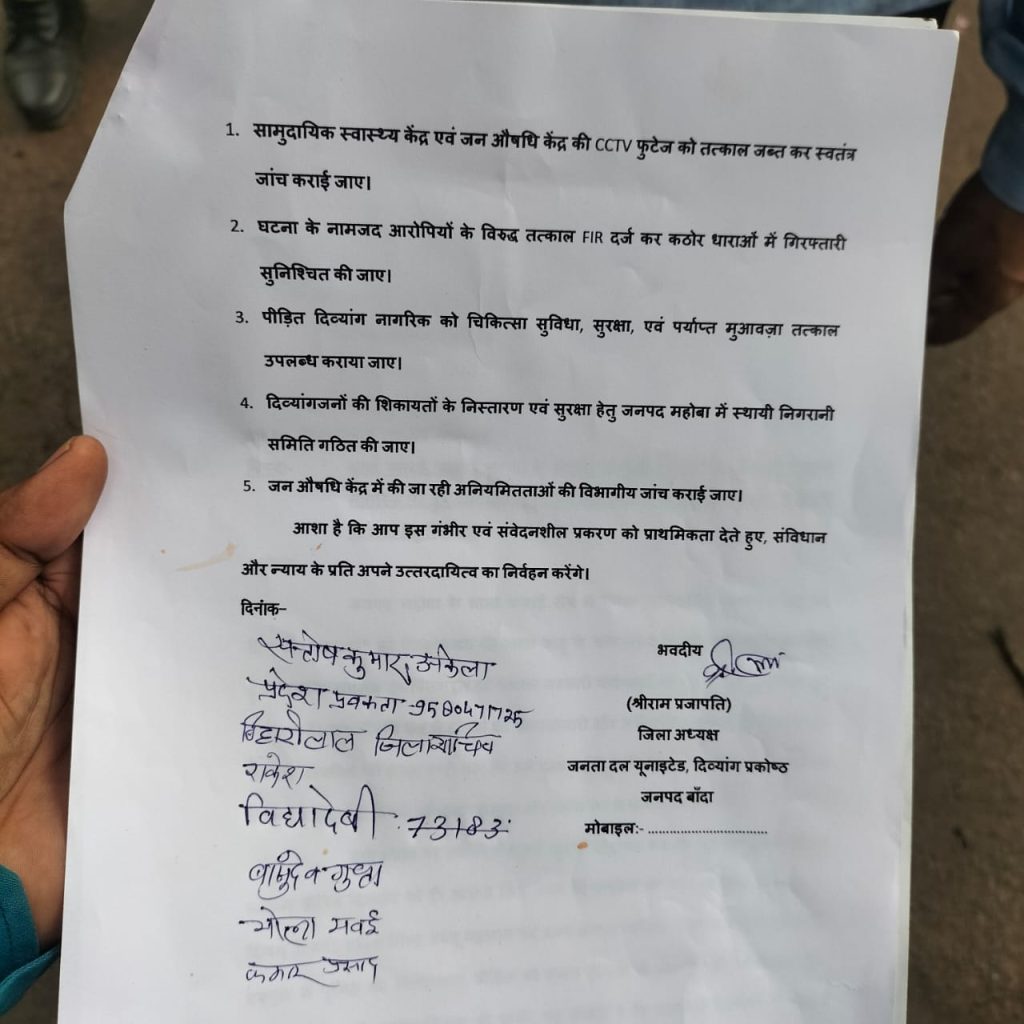 1. सामुदायिक स्वास्थ्य केंद्र एवं जन औषधि केंद्र की CCTV फुटेज को तत्काल जब्त कर स्वतंत्र
जांच कराई जाए।
2. घटना के नामजद आरोपियों के विरुद्ध तत्काल FIR दर्ज कर कठोर धाराओं में गिरफ्तारी
सुनिश्चित की जाए।
3. पीड़ित दिव्यांग नागरिक को चिकित्सा सुविधा, सुरक्षा, एवं पर्याप्त मुआवज़ा तत्काल
उपलब्ध कराया जाए।
4. दिव्यांगजनों की शिकायतों के निस्तारण एवं सुरक्षा हेतु जनपद महोबा में स्थायी निगरानी
समिति गठित की जाए।
5. जन औषधि केंद्र में की जा रही अनियमितताओं की विभागीय जांच कराई जाए।
आशा है कि आप इस गंभीर एवं संवेदनशील प्रकरण को प्राथमिकता देते हुए, संविधान
और न्याय के प्रति अपने उत्तरदायित्व का निर्वहन करेंगे।
दिनांक-
सन्तोष कुमार अकेला
प्रदेश प्रवक्ता
बिहारीलाल जिला सचिव
राकेश
विद्यादेवी 73183
गुप्ता
भवदीय
(श्रीराम प्रजापति)
जिला अध्यक्ष
जनता दल यूनाइटेड, दिव्यांग प्रकोष्ठ
जनपद बाँदा
मोबाइल:- ................................